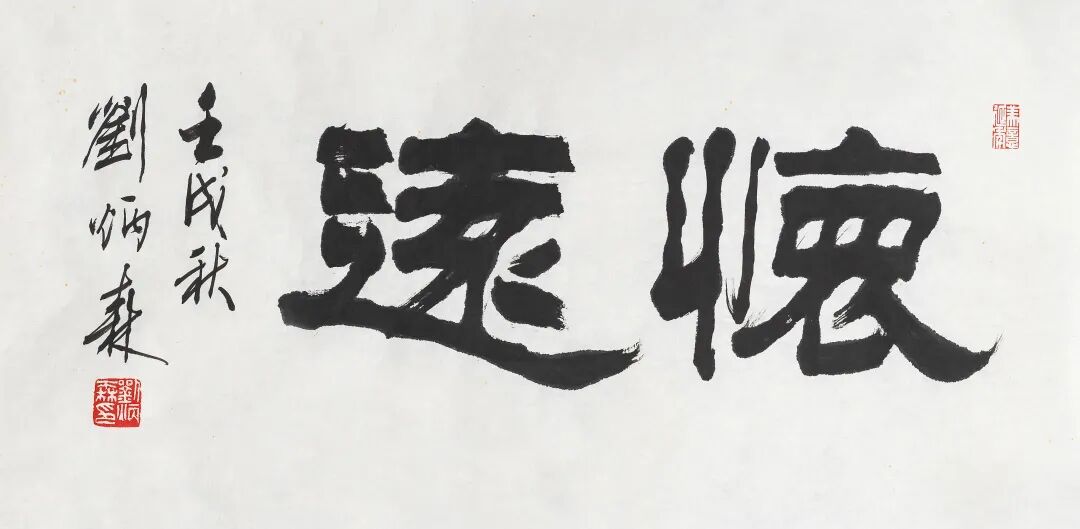 懷遠
壬戌秋
劉炳森
劉炳森印